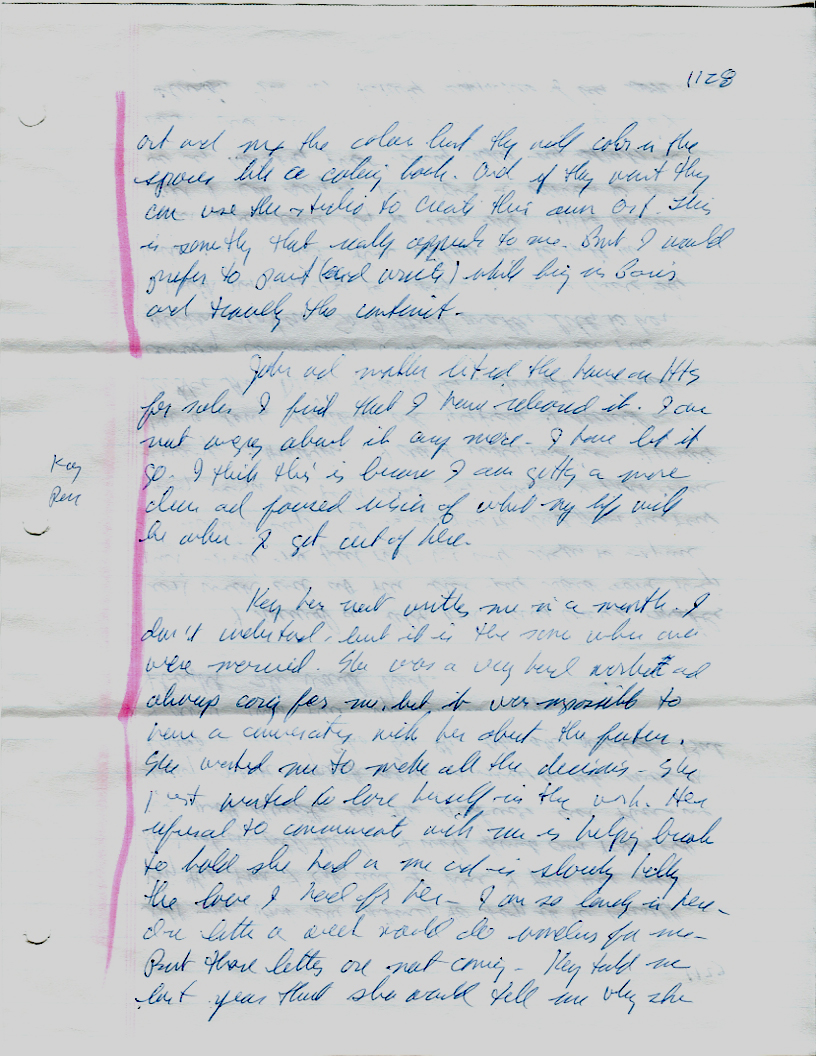 1128
art and mix the colors but they will color in the
spaces like a coloring book. And if they want they
can use the studio to create their own art. This
is something that really appeals to me. But I would
prefer to paint (and write) while living in Paris
and traveling the continent.
John and mother listed the house on
for sale. I find that I have released it. I am
not angry about it any more. I have let it
go. I think this is because I am getting a more
clear and focused vision of what my life will
be when I get out of here.
Kay
Kay has not written me in a month. I
don't understand, but it is the same when we
were married. She was a very hard worker and
always caring for me, but it was impossible to
have a conversation with her about the future.
She wanted me to make all the decisions - she
just wanted to lose herself in the work. Her
refusal to communicate with me is helping break
the hold she had on me and is slowly killing
the love I had for her - I am so lonely in here -
One letter a week would do wonders for me -
But those letters are not coming - Kay told me
last year that she would tell me why she